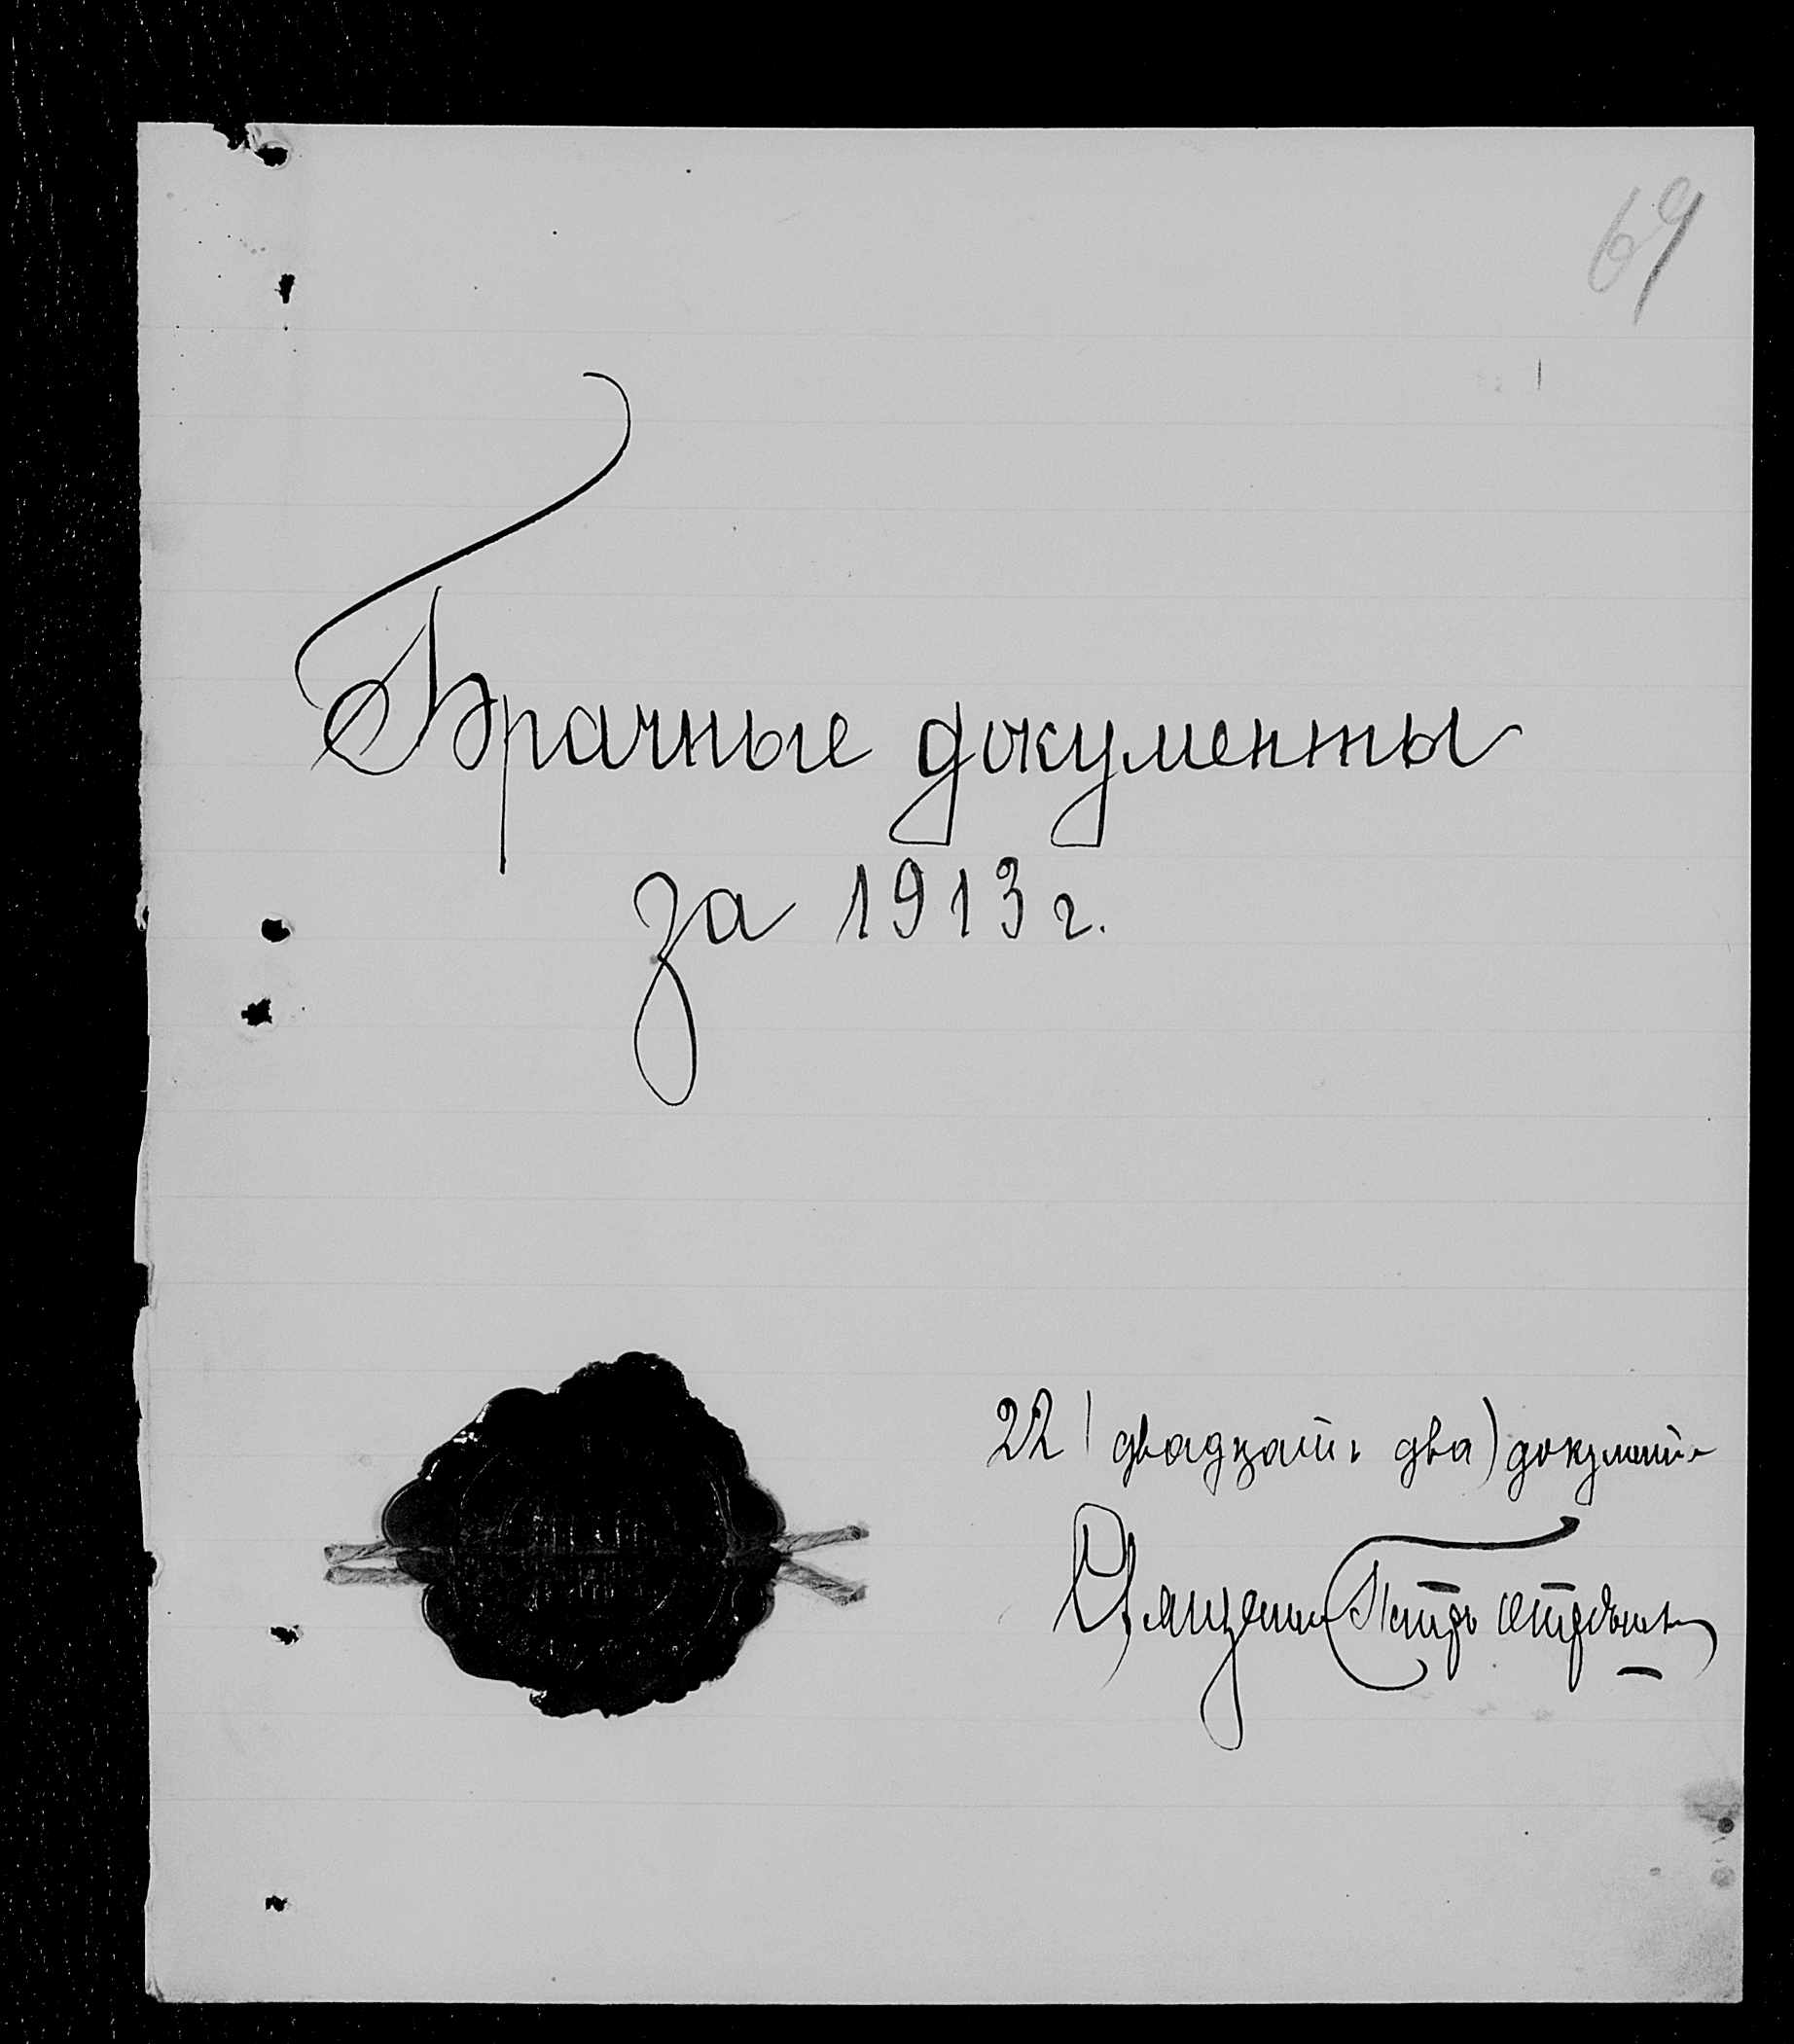 69
Брачные документы
за 1913 г.
22 (двадцать два) документа
Священник Петр